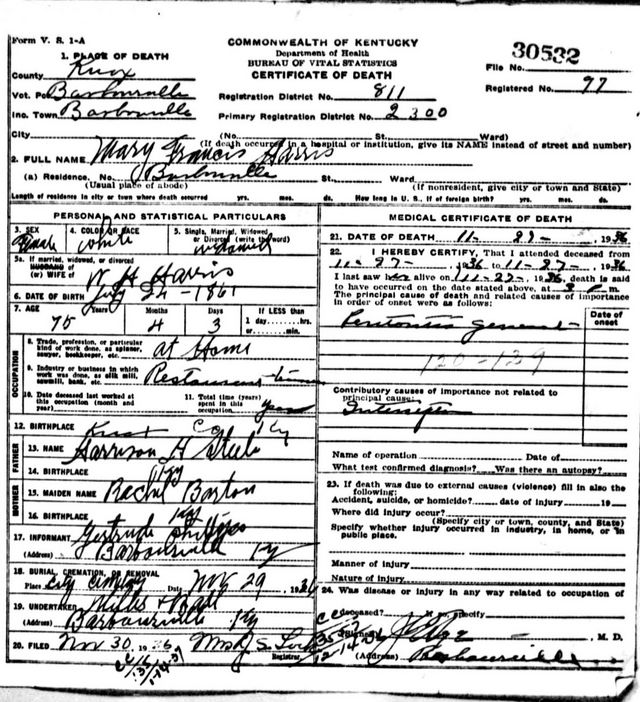 Form V. S. 1-A
COMMONWEALTH OF KENTUCKY
Department of Health
BUREAU OF VITAL STATISTICS
CERTIFICATE OF DEATH
30532
File No.
Registered No. 97
1. PLACE OF DEATH
County Knox
Vot. Barbourville
Inc. Town Barbourville
Registration District No. 811
Primary Registration District No. 2300
City (No. St. Ward)
(If death occurred in a hospital or institution, give its NAME instead of street and number)
2. FULL NAME Mary Francis Harris
(a) Residence. No. Barbourville St. Ward
(Usual place of abode) (If nonresident, give city or town and State)
Length of residence in city or town where death occurred yrs. mos. ds. How long in U. S., if of foreign birth? yrs. mos. ds.
PERSONAL AND STATISTICAL PARTICULARS
3. SEX Female
4. COLOR OR RACE White
5. Single, Married, Widowed or Divorced (write the word) widowed
5a. If married, widowed, or divorced
HUSBAND of
(or) WIFE of W H Harris
6. DATE OF BIRTH July 24-1861
7. AGE 75 Years 4 Months 3 Days
If LESS than
1 day hrs.
or min.
OCCUPATION
8. Trade, profession, or particular
kind of work done, as spinner,
sawyer, bookkeeper, etc. at Home
9. Industry or business in which
work was done, as silk mill,
sawmill, bank, etc. Restaurant
10. Date deceased last worked at
this occupation (month and
year)
11. Total time (years)
spent in this
occupation years
12. BIRTHPLACE Knox Co Ky
FATHER
13. NAME Harrison H Steele
14. BIRTHPLACE Ky
MOTHER
15. MAIDEN NAME Rachel Barton
16. BIRTHPLACE Ky
17. INFORMANT Gertrude
(Address) Barbourville Ky
18. BURIAL, CREMATION, OR REMOVAL
Place City Cemetery Date Nov 29, 1936
19. UNDERTAKER
(Address) Barbourville Ky
20. FILED Nov 30 1936 Mrs J S
Registrar
1-14-37
MEDICAL CERTIFICATE OF DEATH
21. DATE OF DEATH 11-27- 1936
22. I HEREBY CERTIFY, That I attended deceased from
11-27- 1936 to 11-27- 1936
I last saw alive on 11-27- 1936, death is said
to have occurred on the date stated above, at m.
The principal cause of death and related causes of importance
in order of onset were as follows:
Date of
onset
Peritonitis general
120-139
Contributory causes of importance not related to
principal cause:
Name of operation Date of
What test confirmed diagnosis? Was there an autopsy?
23. If death was due to external causes (violence) fill in also the
following:
Accident, suicide, or homicide? date of injury 19
Where did injury occur?
(Specify city or town, county, and State)
Specify whether injury occurred in industry, in home, or in
public place.
Manner of injury
Nature of injury
24. Was disease or injury in any way related to occupation of
deceased? If so, specify
M. D.
(Address) Barbourville